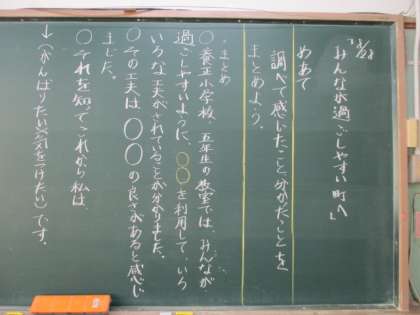 「みんなが過ごしやすい町へ」
めあて
調べて感じたこと、分かったことを
まとめよう。
まとめ
○養正小学校、五年生の教室では、みんなが
過ごしやすいように、○○を利用して、いろ
いろな工夫がされていることが分かりました。
○その工夫は○○の良さがあると感じ
ました。
○それを知ってこれから私は、
↓(がんばりたい、気をつけたい)です。